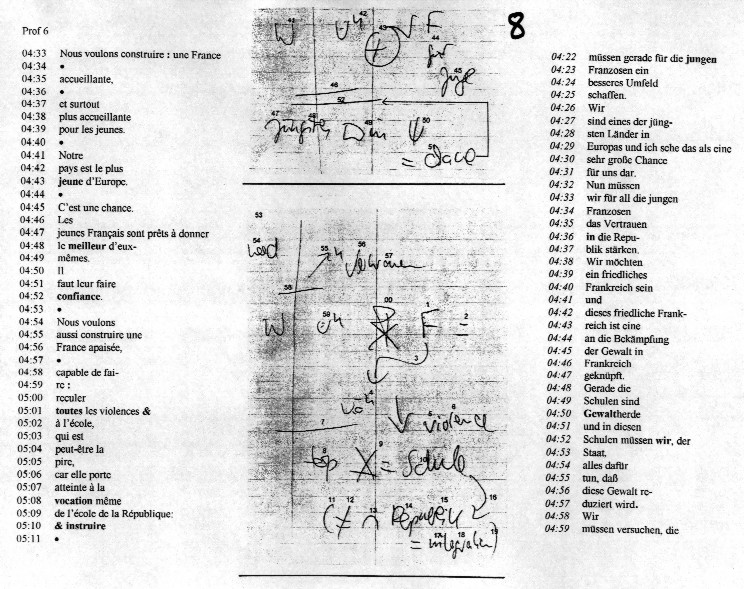 Prof 6
8
04:33 Nous voulons construire : une France
04:34 •
04:35 accueillante,
04:36 •
04:37 et surtout
04:38 plus accueillante
04:39 pour les jeunes.
04:40 •
04:41 Notre
04:42 pays est le plus
04:43 jeune d'Europe.
04:44 •
04:45 C'est une chance.
04:46 Les
04:47 jeunes Français sont prêts à donner
04:48 le meilleur d'eux-
04:49 mêmes.
04:50 Il
04:51 faut leur faire
04:52 confiance.
04:53 •
04:54 Nous voulons
04:55 aussi construire une
04:56 France apaisée,
04:57 •
04:58 capable de fai-
04:59 re :
05:00 reculer
05:01 toutes les violences &
05:02 à l'école,
05:03 qui est
05:04 peut-être la
05:05 pire,
05:06 car elle porte
05:07 atteinte à la
05:08 vocation même
05:09 de l'école de la République:
05:10 & instruire
05:11 •
41 42 43
W F
44
45
46
52
47 48 49 50
51
53
54 55 56 57
Vertrauen
58
59 00 1 2
W F =
3
4
5 6
violence
7
8 9 10
top X = Schule
11 12 13 14 15 16
(≠ ∩ Republik
17 18 19
= integration)
04:22 müssen gerade für die jungen
04:23 Franzosen ein
04:24 besseres Umfeld
04:25 schaffen.
04:26 Wir
04:27 sind eines der jüng-
04:28 sten Länder in
04:29 Europas und ich sehe das als eine
04:30 sehr große Chance
04:31 für uns dar.
04:32 Nun müssen
04:33 wir für all die jungen
04:34 Franzosen
04:35 das Vertrauen
04:36 in die Repu-
04:37 blik stärken.
04:38 Wir möchten
04:39 ein friedliches
04:40 Frankreich sein
04:41 und
04:42 dieses friedliche Frank-
04:43 reich ist eine
04:44 an die Bekämpfung
04:45 der Gewalt in
04:46 Frankreich
04:47 geknüpft.
04:48 Gerade die
04:49 Schulen sind
04:50 Gewaltherde
04:51 und in diesen
04:52 Schulen müssen wir, der
04:53 Staat,
04:54 alles dafür
04:55 tun, daß
04:56 diese Gewalt re-
04:57 duziert wird.
04:58 Wir
04:59 müssen versuchen, die